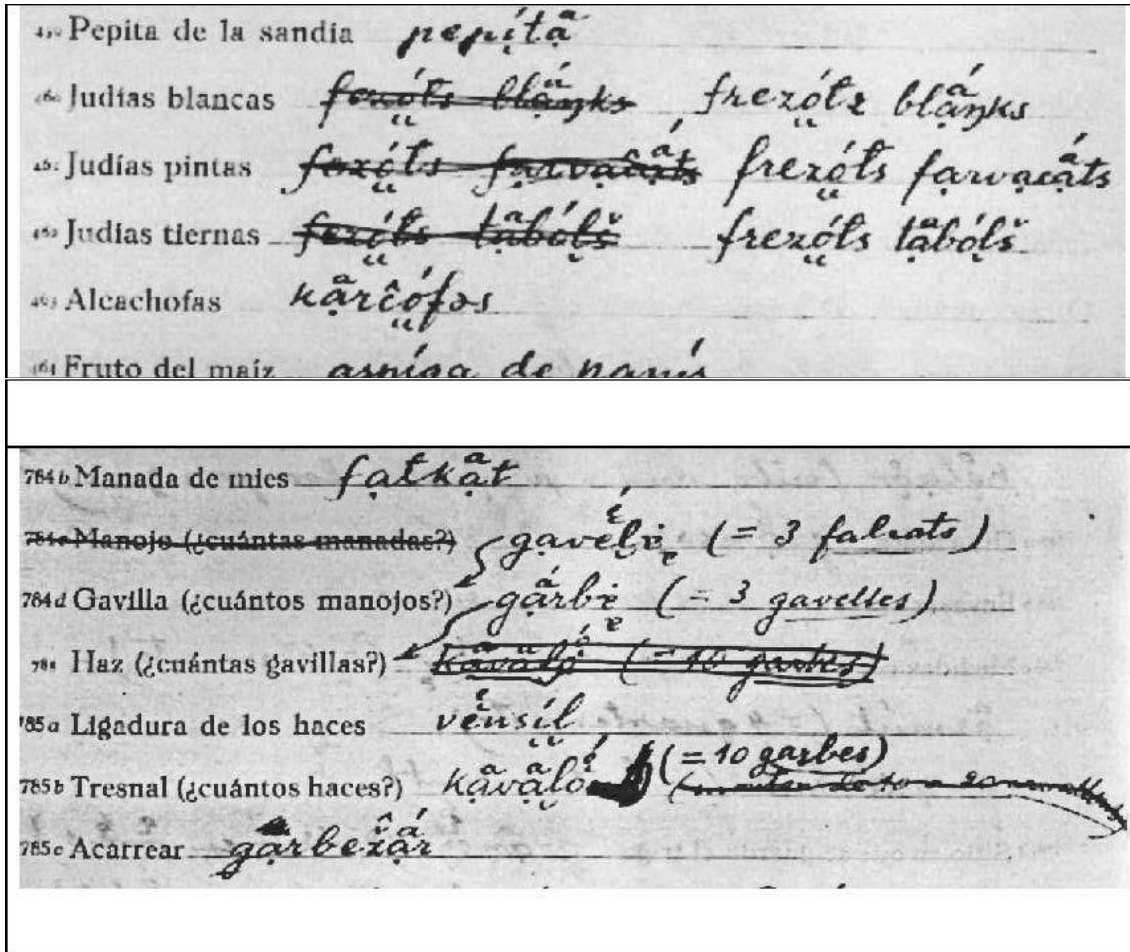 459 Pepita de la sandía pepị́tạ
460 Judías blancas fezó̤ts blạ́ŋks frezó̤ts blạ́ŋks
461 Judías pintas fezó̤ts fạrvạĉạ́ts frezó̤ts fạrvạcạ́ts
462 Judías tiernas fezó̤ts tạbó̤lš frezó̤ts tạbó̤lš
463 Alcachofas kạrĉó̤fəs
464 Fruto del maíz
784b Manada de mies fạłkạt
784c Manojo (¿cuántas manadas?) gạvé̤lə (= 3 falcats)
784d Gavilla (¿cuántos manojos?) gạ́rbə (= 3 gavelles)
785 Haz (¿cuántas gavillas?) kạvạló (= 10 garbes)
785a Ligadura de los haces vensíl
785b Tresnal (¿cuántos haces?) kạvạló (= 10 garbes)
785c Acarrear gạrbexạ́r